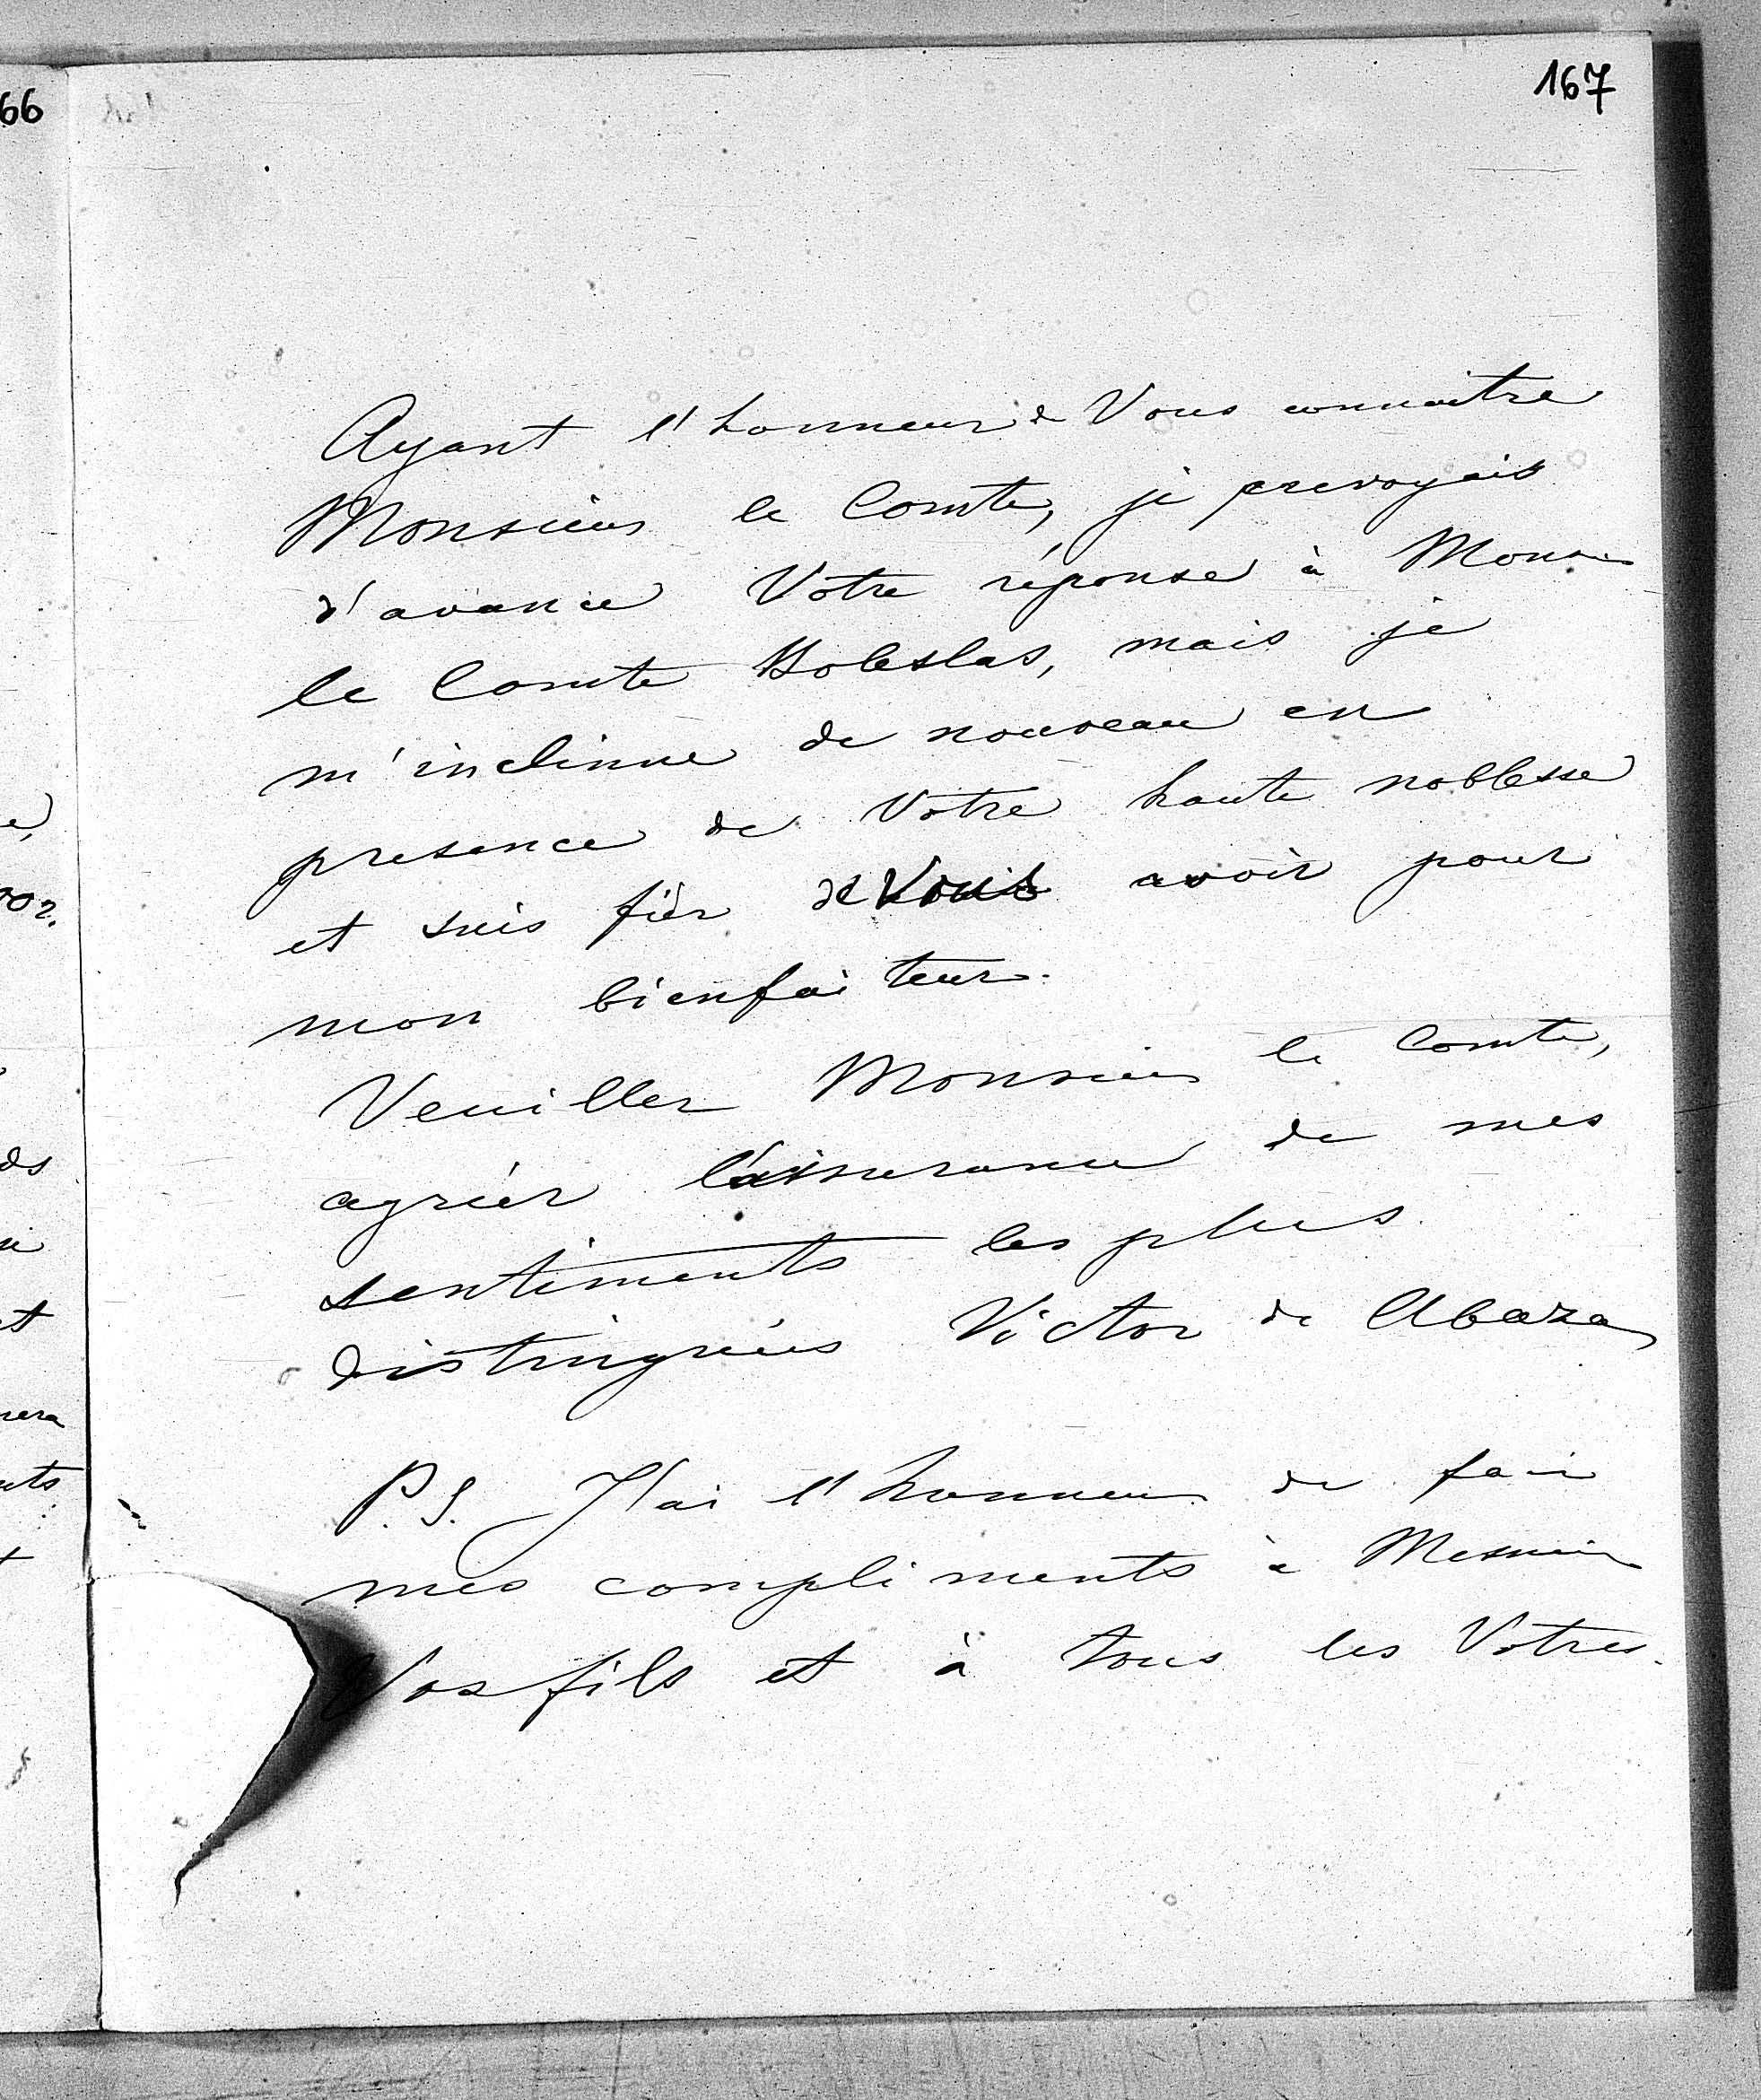 167
Ayant l'honneur de Vous connaître
Monsieur le Comte, je prevoyais
d'avance Votre réponse à Monsieur
le Comte Boleslas, mais je
m'inclinne de nouveau en
presence de Votre haute noblesse
et suis fièr de Vous avoir pour
mon bienfaiteur.
Veuiller Monsieur le Comte,
agréér l'assurance de mes
sentiments les plus
distingués Victor de Abaza
P.S. J'ai l'honneur de faire
mes compliments à Messieurs
Vos fils et à tous les Votres.
66